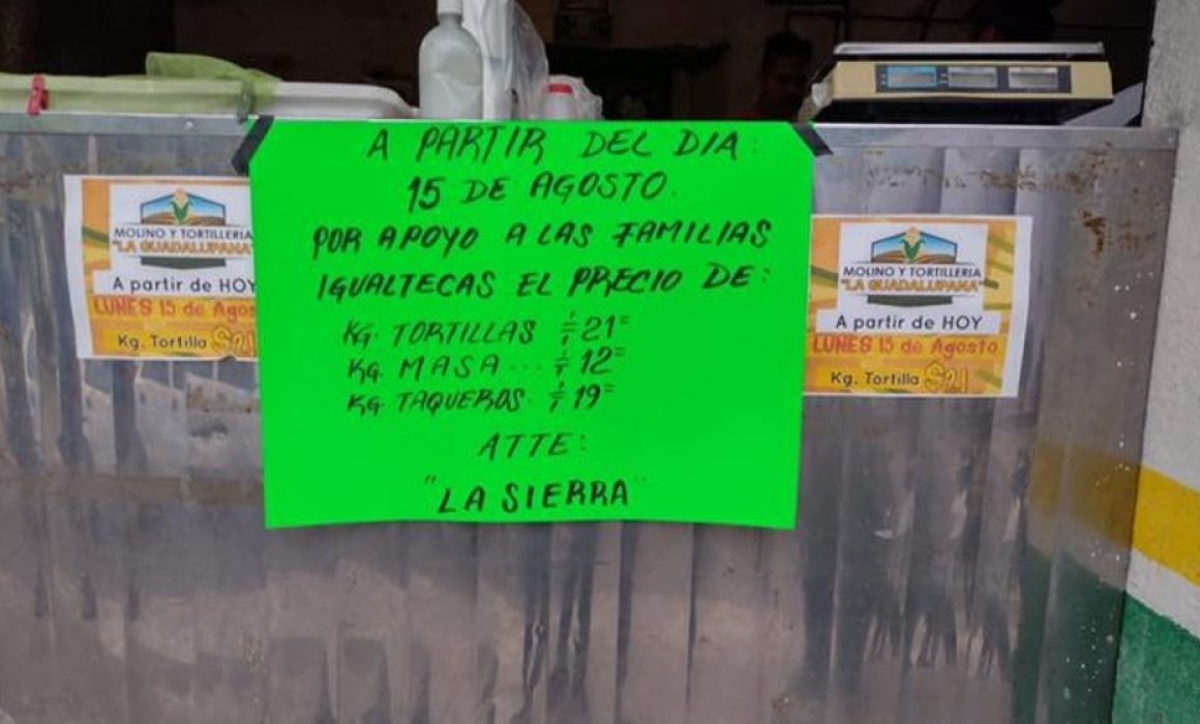 A PARTIR DEL DIA:
15 DE AGOSTO.
POR APOYO A LAS FAMILIAS
IGUALTECAS EL PRECIO DE:
KG. TORTILLAS $21=
KG. MASA... $12=
KG. TAQUEROS. $19=
ATTE:
"LA SIERRA"
MOLINO Y TORTILLERIA
"LA GUADALUPANA
A partir de HOY
LUNES 15 de Agos
Kg. Tortilla $21
MOLINO Y TORTILLERIA
"LA GUADALUPANA"
A partir de HOY
LUNES 15 de Agosto
Kg. Tortilla $21